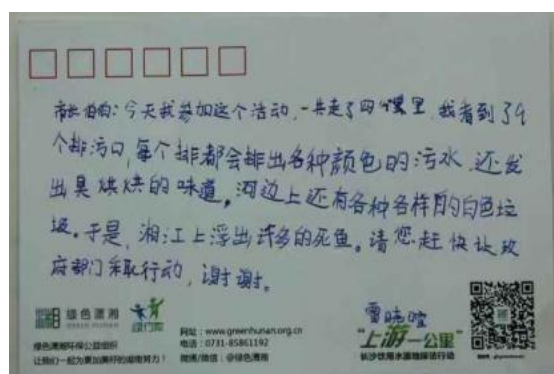 市长伯伯:今天我参加这个活动,一共走了四个里,我看到了9
个排污口,每个排都会排出各种颜色的污水,还发
出臭烘烘的味道。河边上还有各种各样的白色垃
圾。于是,湘江上浮出许多的死鱼。请您赶快让政
府部门采取行动,谢谢。
绿色潇湘
GREEN HUNAN
绿行家
绿色潇湘环保公益组织
让我们一起为更加美好的湖南努力!
网址:www.greenhunan.org.cn
电话:0731-85861192
微博/微信:@绿色潇湘
“上游一公里”
长沙饮用水源地探访行动